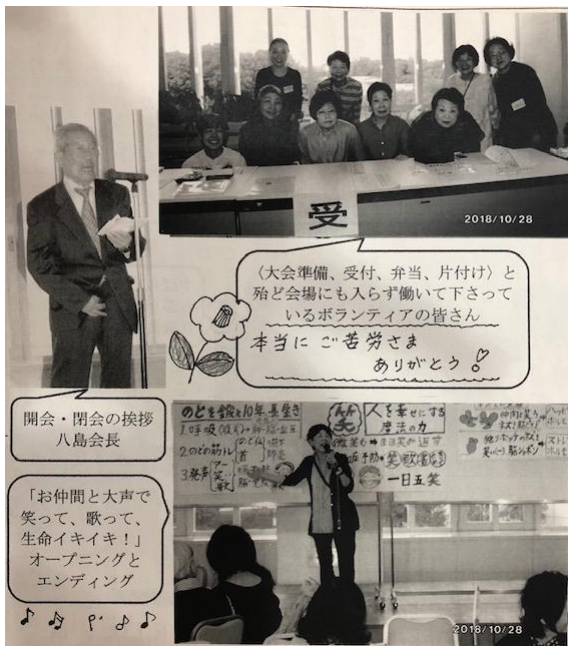 受
2018/10/28
〈大会準備、受付、弁当、片付け〉と
殆ど会場にも入らず働いて下さって
いるボランティアの皆さん
本当に ご苦労さま
ありがとう!
開会・閉会の挨拶
八島会長
「お仲間と大声で
笑って、歌って、
生命イキイキ!」
オープニングと
エンディング
のどを鍛え10年長生き
1.呼吸
2.のどの筋トレ
3.発声
笑
人を幸せにする
魔法の力
一日五笑
2018/10/28